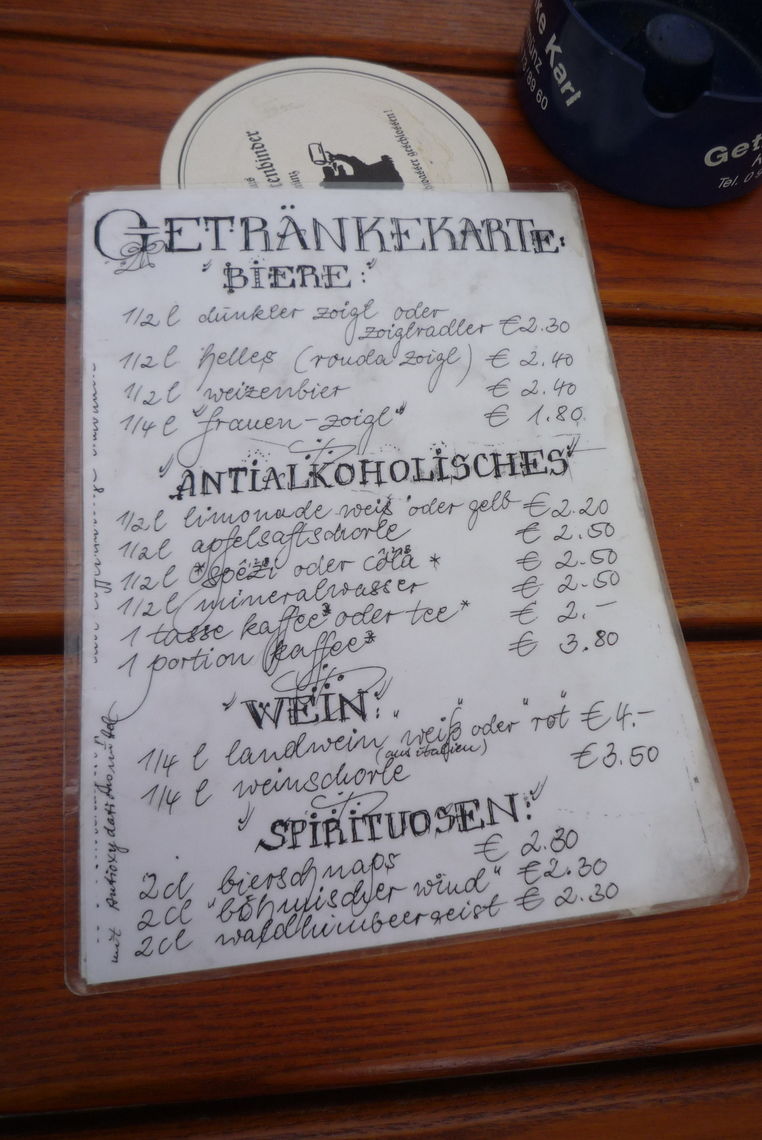 ke Karl
73/89 60
Get
Tel. 0 9
GETRÄNKEKARTE:
"BIERE:"
1/2 l dunkler zoigl oder
zoiglradler € 2.30
1/2 l helles (rouda zoigl) € 2.40
1/2 l weizenbier € 2.40
1/4 l "frauen-zoigl" € 1.80
"ANTIALKOHOLISCHES"
1/2 l limonade weiß oder gelb € 2.20
1/2 l apfelsaftschorle € 2.50
1/2 l *spezi oder cola* € 2.50
1/2 l mineralwasser € 2.50
1 tasse kaffee* oder tee* € 2.-
1 portion kaffee* € 3.80
"WEIN:"
1/4 l landwein "weiß" oder "rot" € 4.-
(aus italien)
1/4 l weinschorle € 3.50
"SPIRITUOSEN:"
2cl bierschnaps € 2.30
2cl "böhmischer wind" € 2.30
2cl waldhimbeergeist € 2.30
mit Antioxydationsmittel